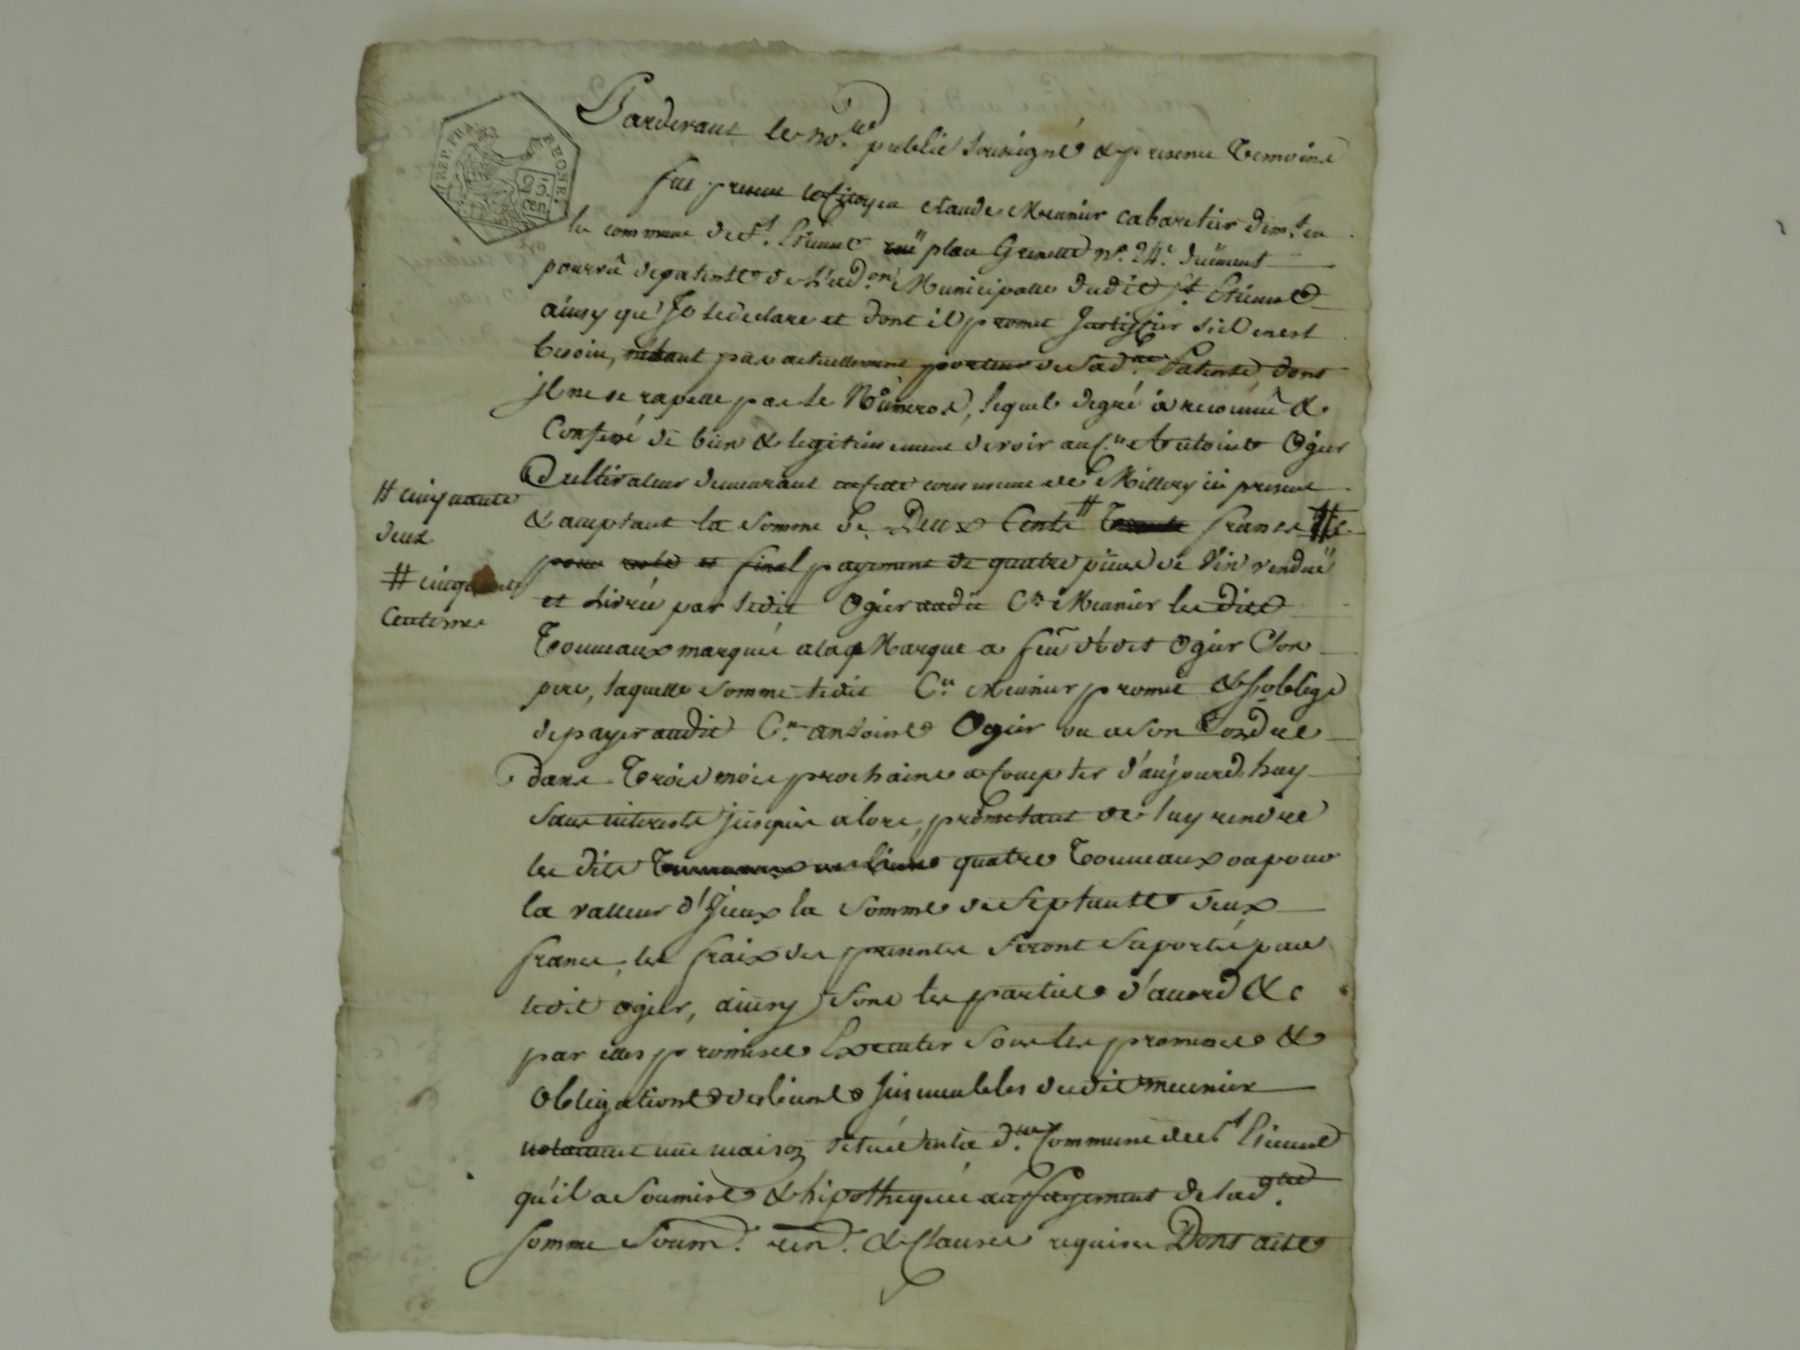 REP. FRA. RHONE.
25 cen.
Pardevant le no.re public soussigné & presents temoins
fut present le Citoyen Claude Meunier cabaretier dem.t en
la commune de S.t Etienne place Grenette n.o 24. duëment
pourvû de patente de l'ad.on Municipalle dudit S.t Etienne
ainsy qu'il le declare et dont il promet justiffier s'il en est
besoin, n'etant pas actuellement porteur de lad.te Patente, dont
il ne se rapelle pas le Numeros, lequel de gré à reconnû &
Confessé de bien & legitimement devoir au C.n Antoine Ogier
Cultivateur demeurant commune de Millery ici present
& acceptant la somme de Deux Cents # francs #
pour reste et final payement de quatre pieces de Vin vendue
et Livrée par ledit Ogier audit C.n Meunier les dits
Tonneaux marqués a la Marque a feu dudit Ogier
pere, laquelle somme ledit C.n Meunier promet & s'oblige
de payer audit C.n antoine Ogier ou a son
dans trois mois prochains a Compter d'aujourd'huy
sans interets jusques alors, prometant de luy rendre
les dits quatre Tonneaux ou pour
la valleur d'Jceux la somme de septante deux
francs, les fraix des presentes seront suportés par
ledit ogier, ainsy sont les parties d'accord & c
par elles promises Executer sous les promesses &
Obligations des biens Jmmeubles dudit meunier
notamment une maison située en la d.te Commune de S.t Etienne
qu'il a soumise & hipothequée au payement de lad.te
somme soum. ren. & Clauses requises Dont acte
# cinquante
deux
# cinquante
Centimes